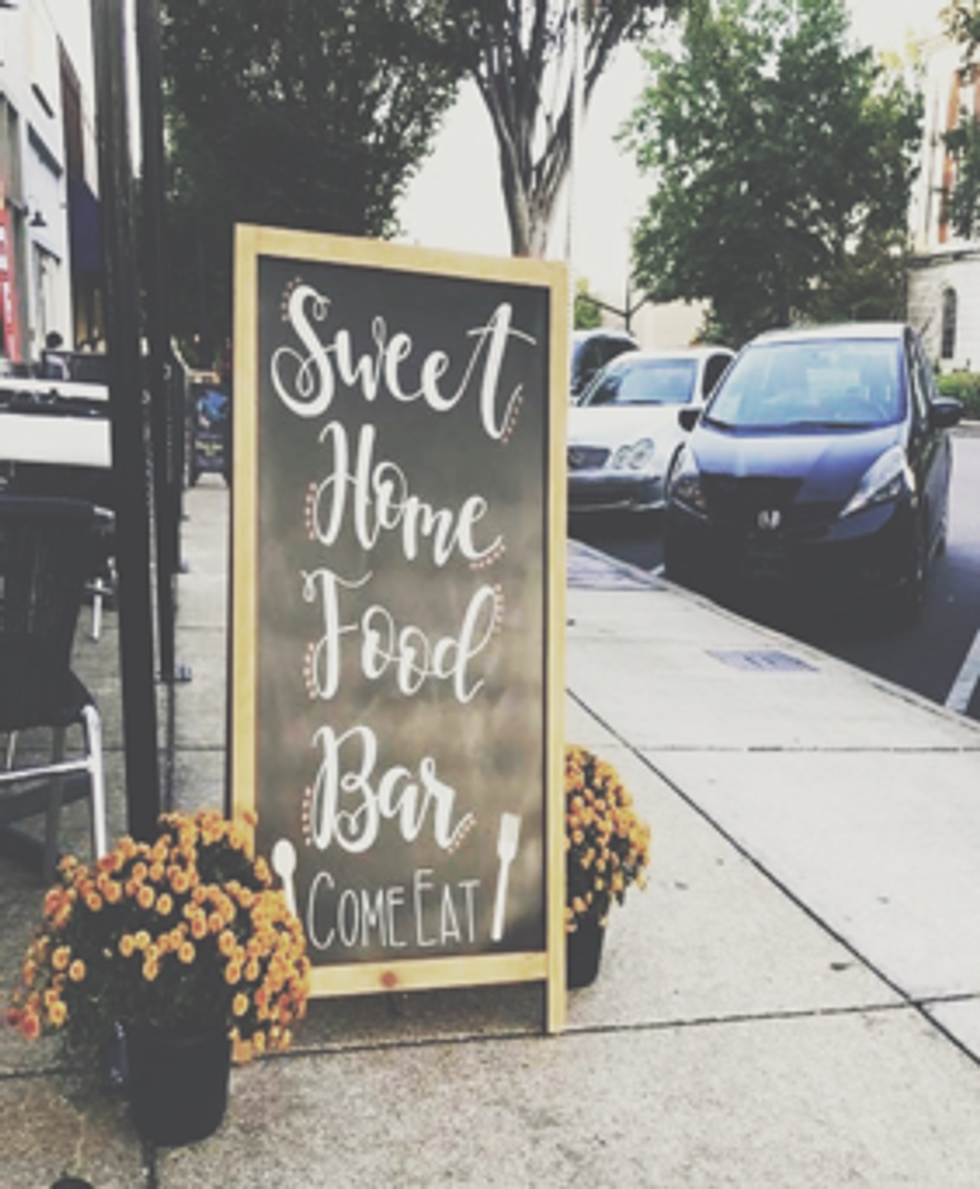 Sweet
Home
Food
Bar
COME EAT